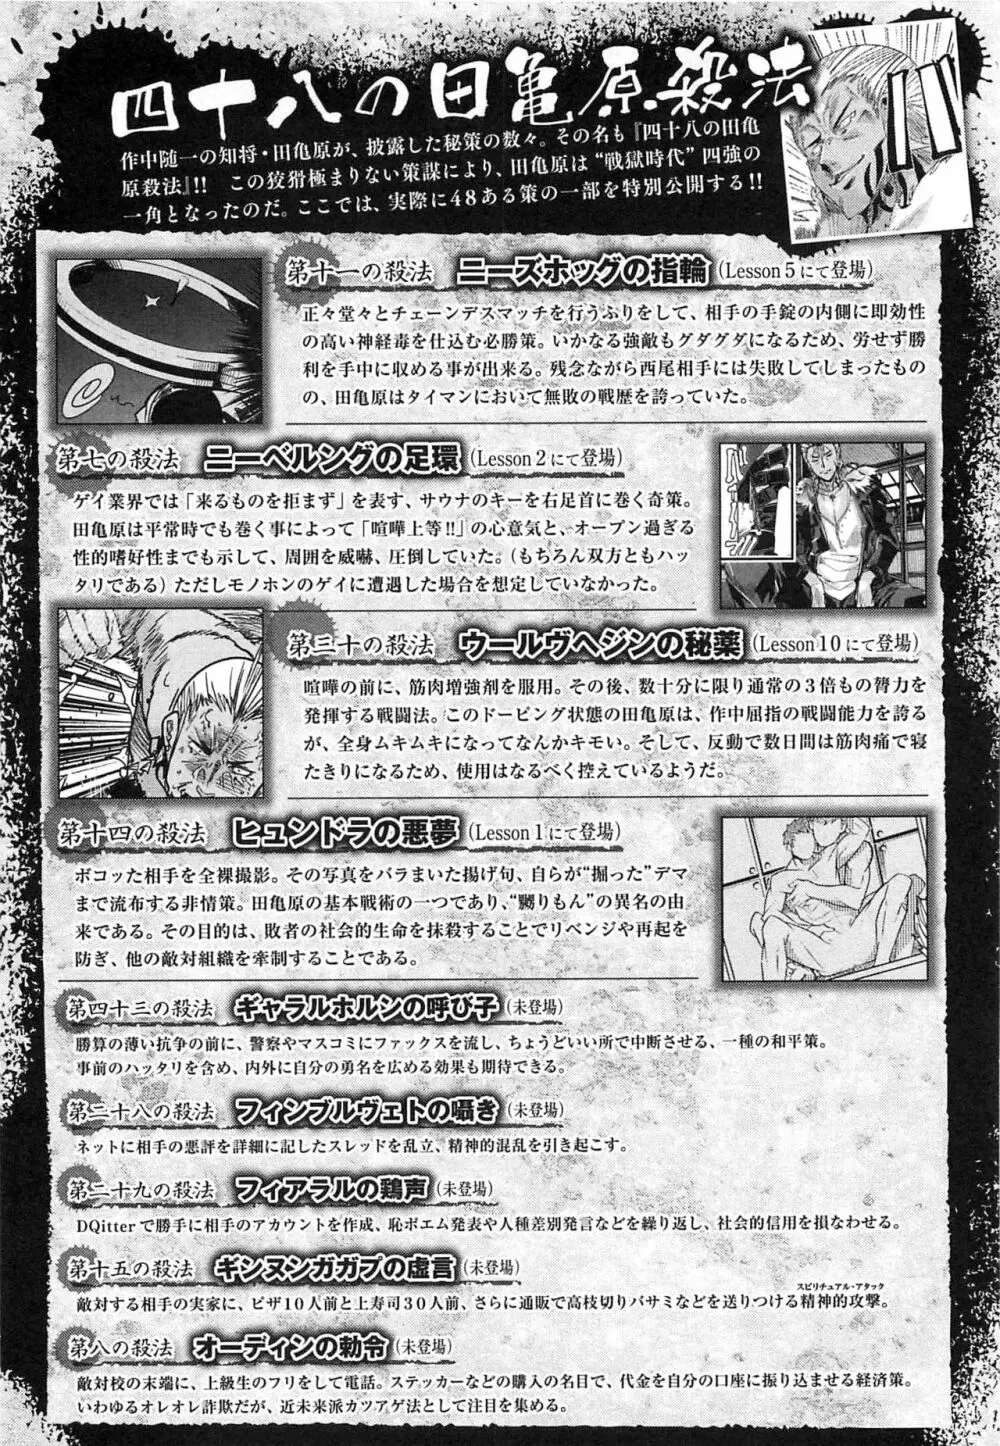 四十八の田亀原殺法
作中随一の知将・田亀原が、披露した秘策の数々。その名も『四十八の田亀
原殺法』!! この狡猾極まりない策謀により、田亀原は“戦獄時代”四強の
一角となったのだ。ここでは、実際に48ある策の一部を特別公開する!!
第十一の殺法 ニーズホッグの指輪(Lesson 5にて登場)
正々堂々とチェーンデスマッチを行うふりをして、相手の手錠の内側に即効性
の高い神経毒を仕込む必勝策。いかなる強敵もグダグダになるため、労せず勝
利を手中に収める事が出来る。残念ながら西尾相手には失敗してしまったもの
の、田亀原はタイマンにおいて無敗の戦歴を誇っていた。
第七の殺法 ニーベルングの足環(Lesson 2にて登場)
ゲイ業界では「来るものを拒まず」を表す、サウナのキーを右足首に巻く奇策。
田亀原は平常時でも巻く事によって「喧嘩上等!!」の心意気と、オープン過ぎる
性的嗜好性までも示して、周囲を威嚇、圧倒していた。(もちろん双方ともハッ
タリである)ただしモノホンのゲイに遭遇した場合を想定していなかった。
第三十の殺法 ウールヴヘジンの秘薬(Lesson 10にて登場)
喧嘩の前に、筋肉増強剤を服用。その後、数十分に限り通常の3倍もの膂力を
発揮する戦闘法。このドーピング状態の田亀原は、作中屈指の戦闘能力を誇る
が、全身ムキムキになってなんかキモい。そして、反動で数日間は筋肉痛で寝
たきりになるため、使用はなるべく控えているようだ。
第十四の殺法 ヒュンドラの悪夢(Lesson 1にて登場)
ボコッた相手を全裸撮影。その写真をバラまいた揚げ句、自らが“掘った”デマ
まで流布する非情策。田亀原の基本戦術の一つであり、“嬲りもん”の異名の由
来である。その目的は、敗者の社会的生命を抹殺することでリベンジや再起を
防ぎ、他の敵対組織を牽制することである。
第四十三の殺法 ギャラルホルンの呼び子(未登場)
勝算の薄い抗争の前に、警察やマスコミにファックスを流し、ちょうどいい所で中断させる、一種の和平策。
事前のハッタリを含め、内外に自分の勇名を広める効果も期待できる。
第二十八の殺法 フィンブルヴェトの囁き(未登場)
ネットに相手の悪評を詳細に記したスレッドを乱立、精神的混乱を引き起こす。
第二十九の殺法 フィアラルの鶏声(未登場)
DQitterで勝手に相手のアカウントを作成、恥ポエム発表や人種差別発言などを繰り返し、社会的信用を損なわせる。
第十五の殺法 ギンヌンガガプの虚言(未登場)
スピリチュアル・アタック
敵対する相手の実家に、ピザ10人前と上寿司30人前、さらに通販で高枝切りバサミなどを送りつける精神的攻撃。
第八の殺法 オーディンの勅令(未登場)
敵対校の末端に、上級生のフリをして電話。ステッカーなどの購入の名目で、代金を自分の口座に振り込ませる経済策。
いわゆるオレオレ詐欺だが、近未来派カツアゲ法として注目を集める。